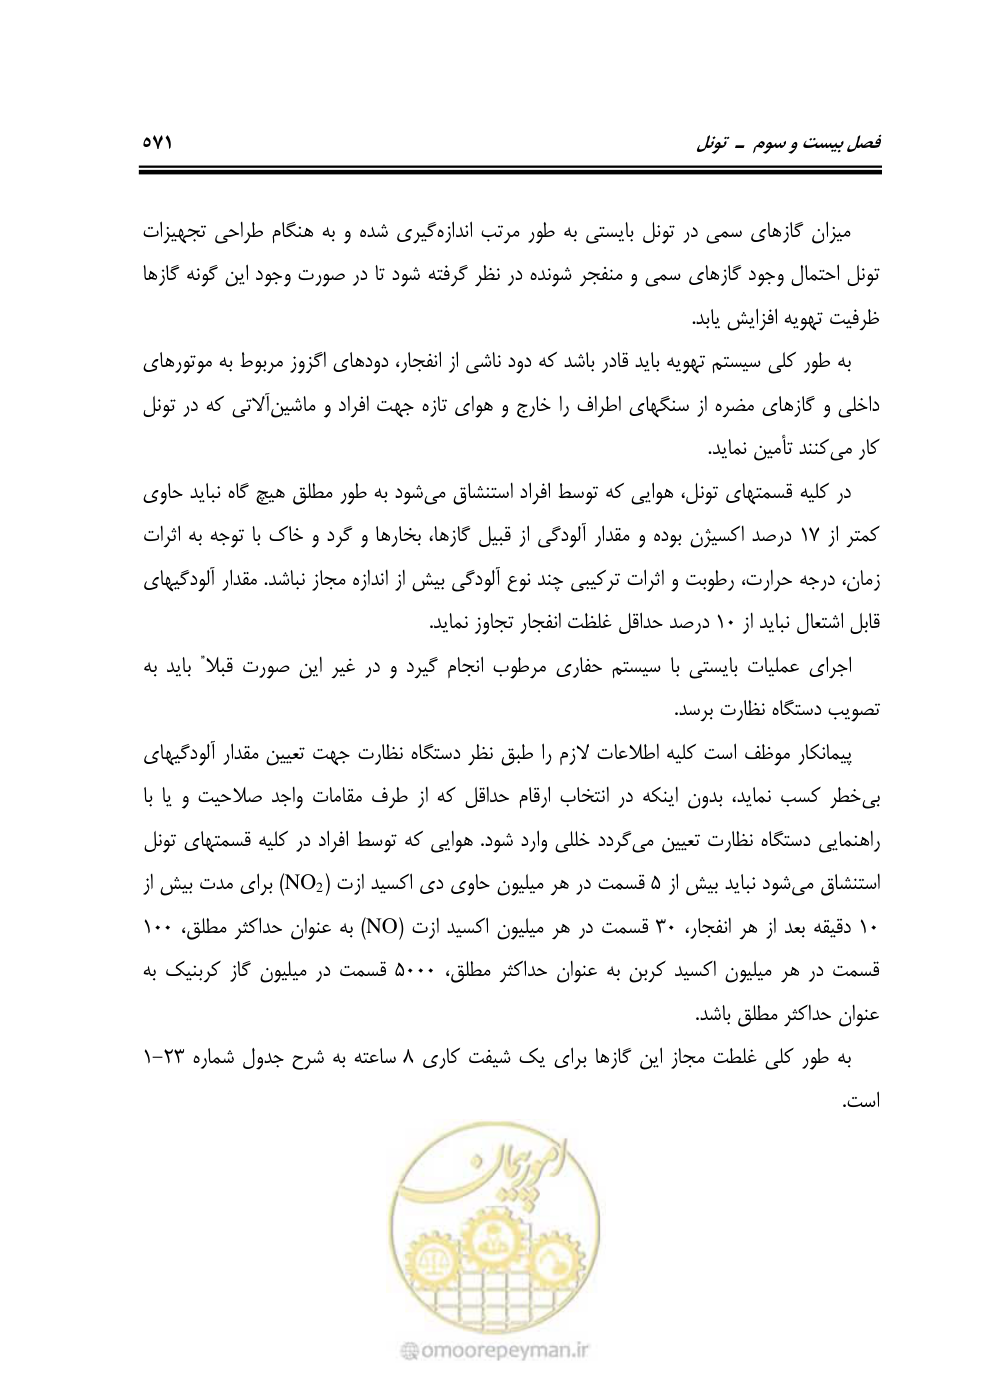 فصل بیست و سوم – تونل
۵۷۱
میزان گازهای سمی در تونل بایستی به طور مرتب اندازه‌گیری شده و به هنگام طراحی تجهیزات
تونل احتمال وجود گازهای سمی و منفجر شونده در نظر گرفته شود تا در صورت وجود این گونه گازها
ظرفیت تهویه افزایش یابد.
به طور کلی سیستم تهویه باید قادر باشد که دود ناشی از انفجار، دودهای اگزوز مربوط به موتورهای
داخلی و گازهای مضره از سنگهای اطراف را خارج و هوای تازه جهت افراد و ماشین‌آلاتی که در تونل
کار می‌کنند تأمین نماید.
در کلیه قسمتهای تونل، هوایی که توسط افراد استنشاق می‌شود به طور مطلق هیچ گاه نباید حاوی
کمتر از ۱۷ درصد اکسیژن بوده و مقدار آلودگی از قبیل گازها، بخارها و گرد و خاک با توجه به اثرات
زمان، درجه حرارت، رطوبت و اثرات ترکیبی چند نوع آلودگی بیش از اندازه مجاز نباشد. مقدار آلودگیهای
قابل اشتعال نباید از ۱۰ درصد حداقل غلظت انفجار تجاوز نماید.
اجرای عملیات بایستی با سیستم حفاری مرطوب انجام گیرد و در غیر این صورت قبلاً باید به
تصویب دستگاه نظارت برسد.
پیمانکار موظف است کلیه اطلاعات لازم را طبق نظر دستگاه نظارت جهت تعیین مقدار آلودگیهای
بی‌خطر کسب نماید، بدون اینکه در انتخاب ارقام حداقل که از طرف مقامات واجد صلاحیت و یا با
راهنمایی دستگاه نظارت تعیین می‌گردد خللی وارد شود. هوایی که توسط افراد در کلیه قسمتهای تونل
استنشاق می‌شود نباید بیش از ۵ قسمت در هر میلیون حاوی دی اکسید ازت (NO2) برای مدت بیش از
۱۰ دقیقه بعد از هر انفجار، ۳۰ قسمت در هر میلیون اکسید ازت (NO) به عنوان حداکثر مطلق، ۱۰۰
قسمت در هر میلیون اکسید کربن به عنوان حداکثر مطلق، ۵۰۰۰ قسمت در میلیون گاز کربنیک به
عنوان حداکثر مطلق باشد.
به طور کلی غلطت مجاز این گازها برای یک شیفت کاری ۸ ساعته به شرح جدول شماره ۲۳-۱
است.
امور پیمان
omoorepeyman.ir